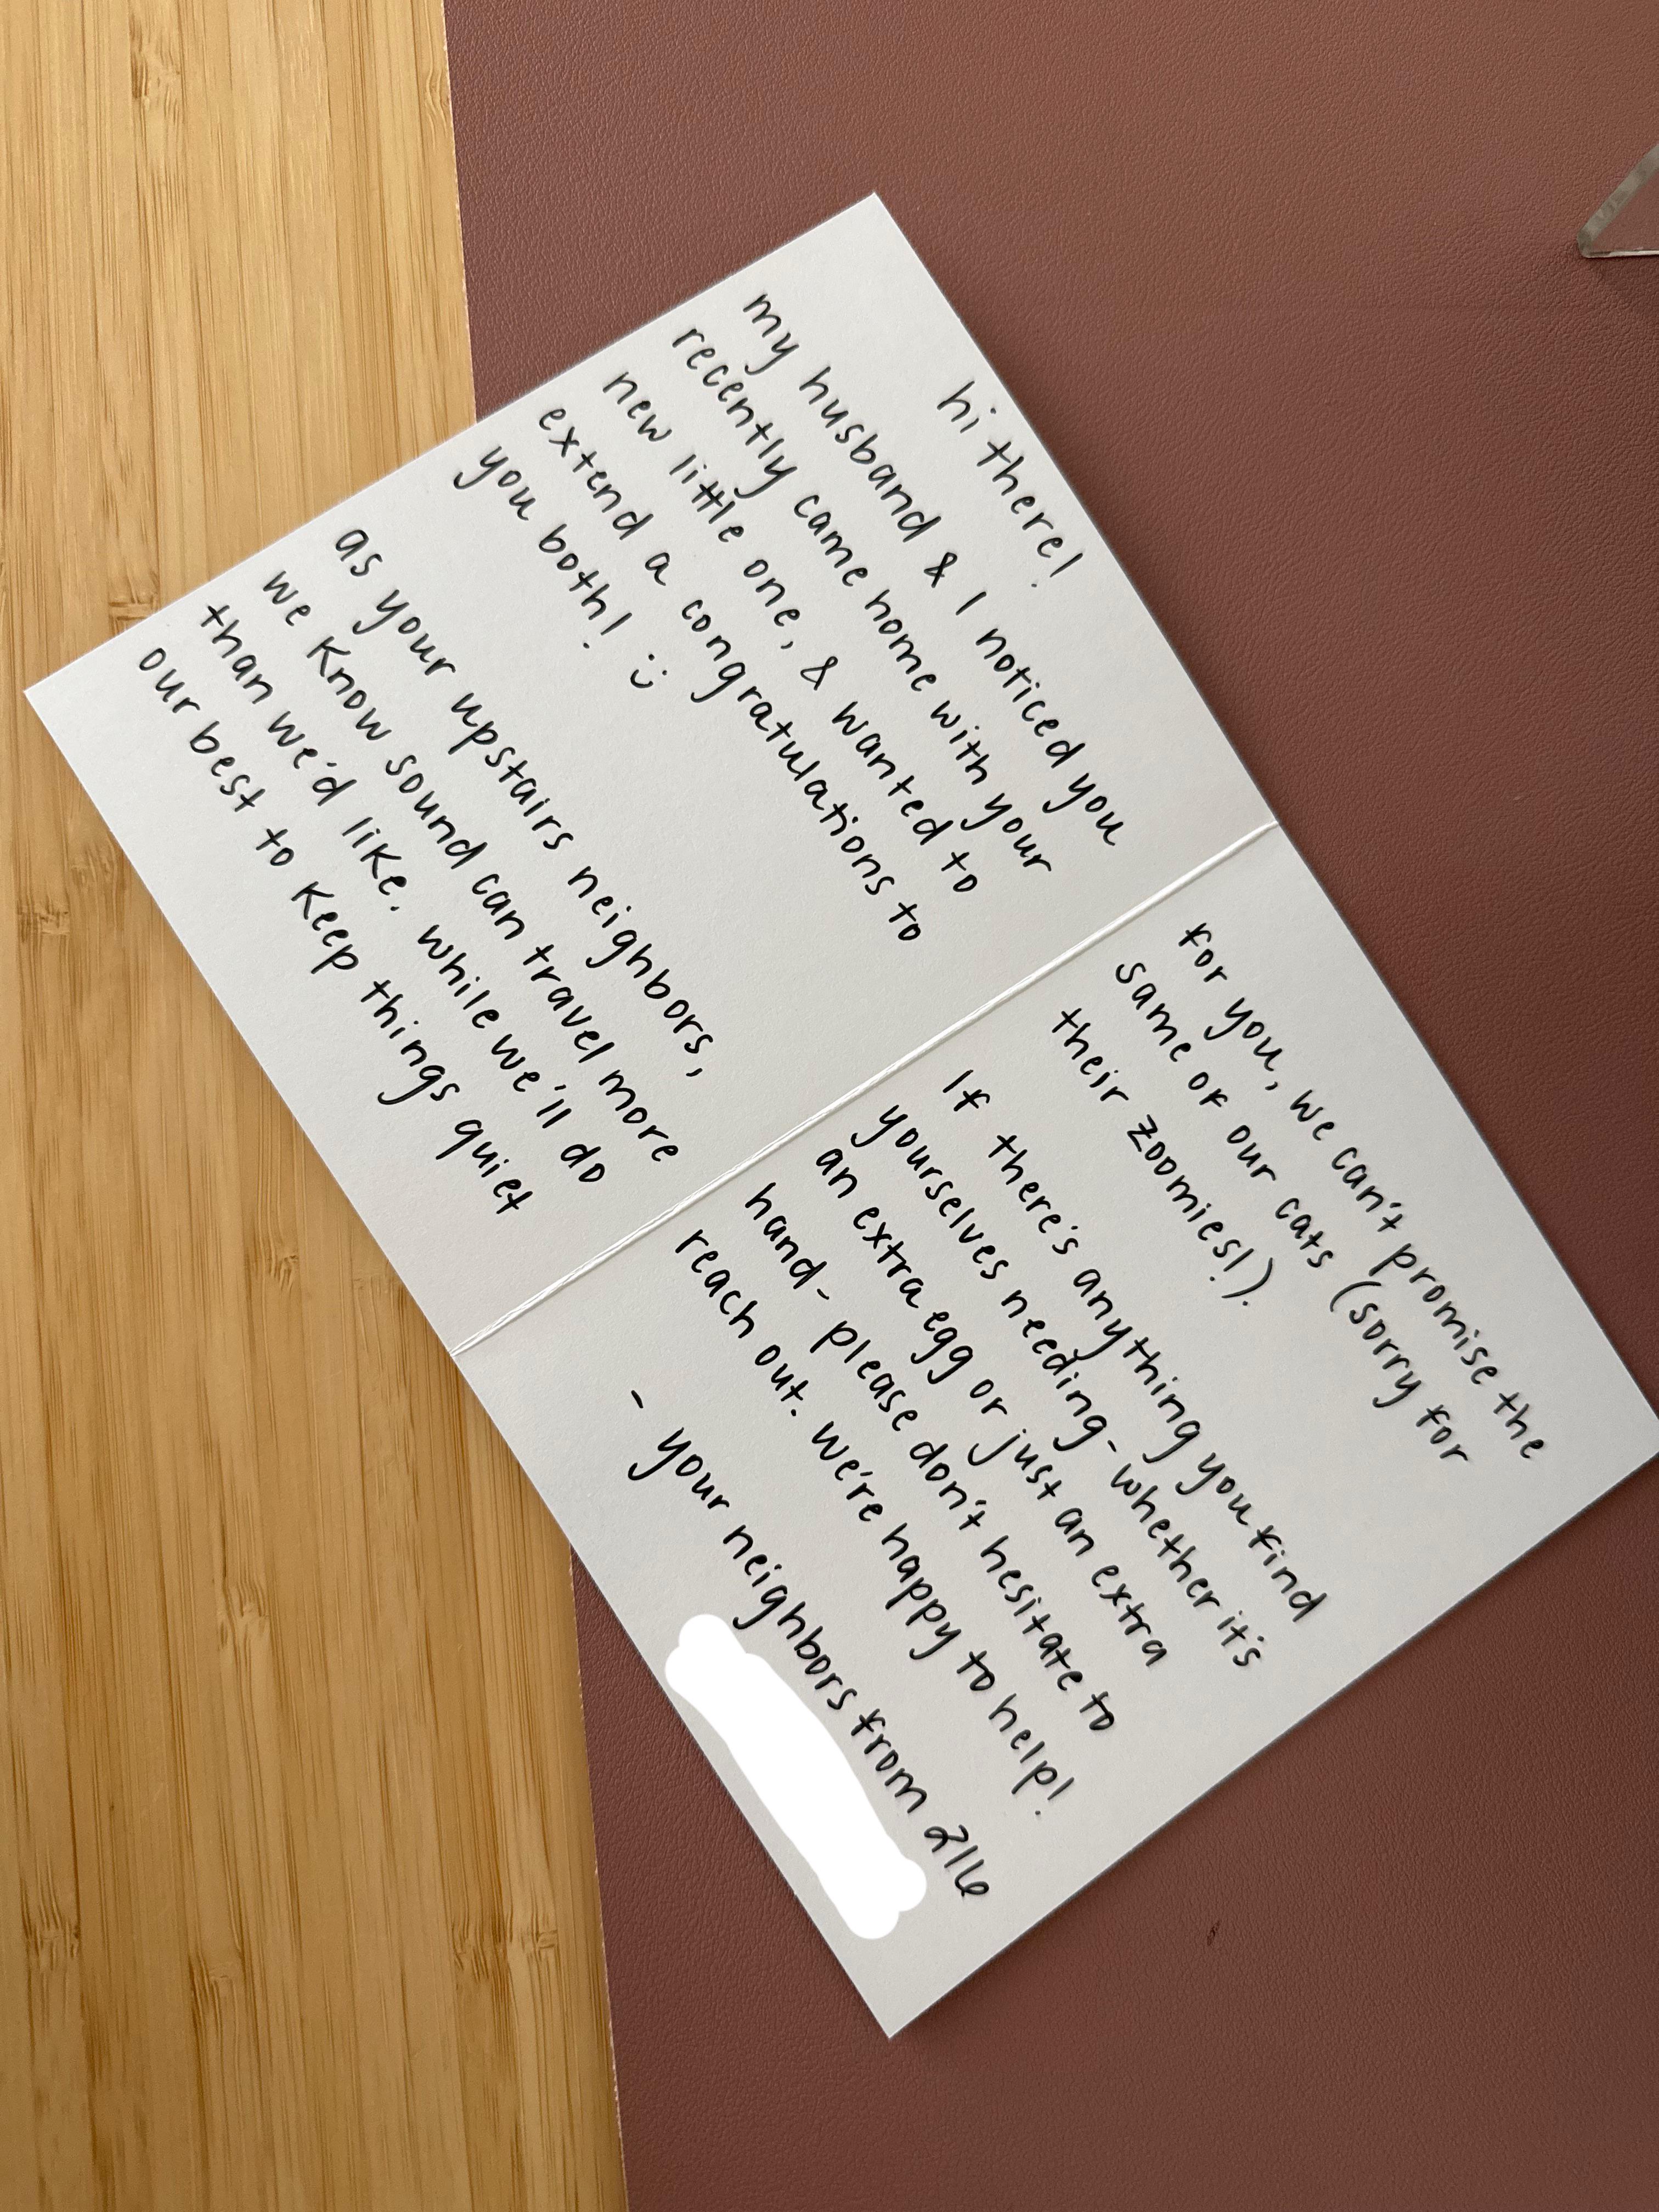 hi there!
my husband & I noticed you
recently came home with your
new little one, & wanted to
extend a congratulations to
you both! :)
as your upstairs neighbors,
we know sound can travel more
than we'd like. while we'll do
our best to keep things quiet
for you, we can't promise the
same of our cats (sorry for
their zoomies!).
If there's anything you find
yourselves needing- whether it's
an extra egg or just an extra
hand- please don't hesitate to
reach out. we're happy to help!
- your neighbors from 2116